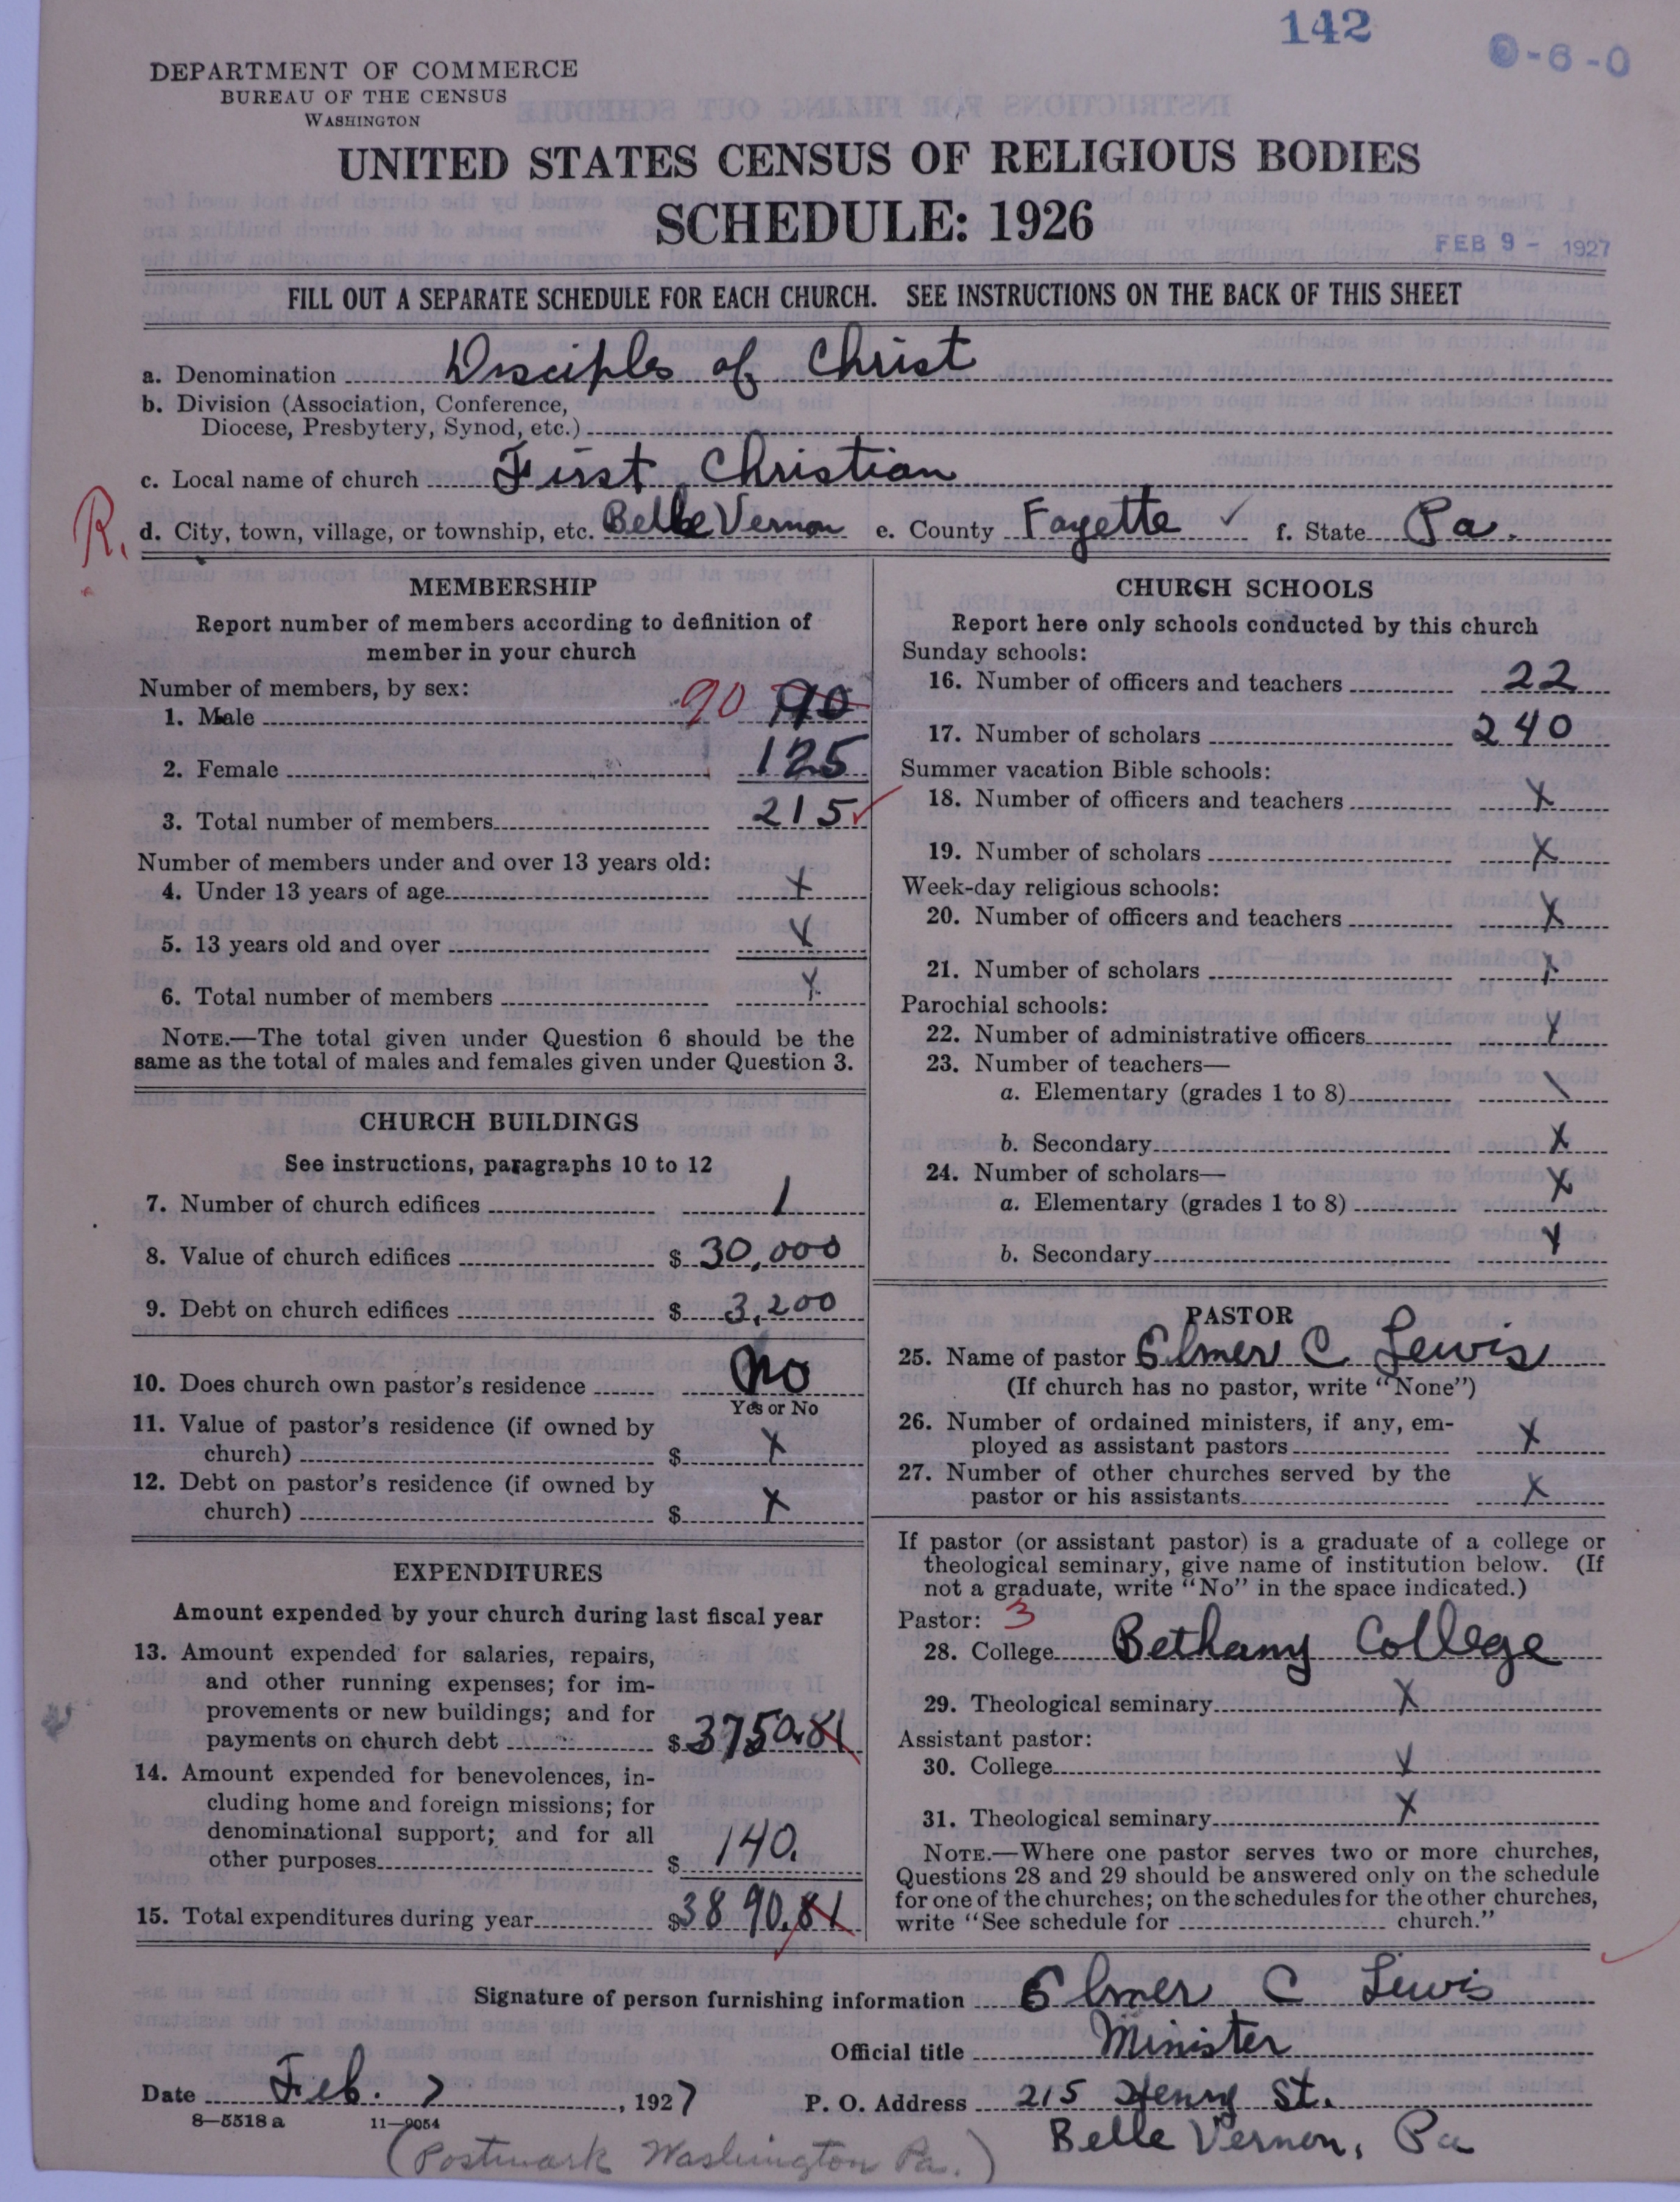 142
0-6-0
DEPARTMENT OF COMMERCE
BUREAU OF THE CENSUS
WASHINGTON
UNITED STATES CENSUS OF RELIGIOUS BODIES
SCHEDULE: 1926
FEB 9 - 1927
FILL OUT A SEPARATE SCHEDULE FOR EACH CHURCH. SEE INSTRUCTIONS ON THE BACK OF THIS SHEET
a. Denomination Disciples of Christ
b. Division (Association, Conference,
Diocese, Presbytery, Synod, etc.)
c. Local name of church First Christian
R. d. City, town, village, or township, etc. Belle Vernon e. County Fayette ✓ f. State Pa.
MEMBERSHIP
Report number of members according to definition of
member in your church
Number of members, by sex:
1. Male 90 90
2. Female 125
3. Total number of members 215 ✓
Number of members under and over 13 years old:
4. Under 13 years of age X
5. 13 years old and over X
6. Total number of members X
NOTE.—The total given under Question 6 should be the
same as the total of males and females given under Question 3.
CHURCH BUILDINGS
See instructions, paragraphs 10 to 12
7. Number of church edifices 1
8. Value of church edifices $ 30,000
9. Debt on church edifices $ 3,200
10. Does church own pastor's residence No
Yes or No
11. Value of pastor's residence (if owned by
church) $ X
12. Debt on pastor's residence (if owned by
church) $ X
EXPENDITURES
Amount expended by your church during last fiscal year
13. Amount expended for salaries, repairs,
and other running expenses; for im-
provements or new buildings; and for
payments on church debt $ 3750.81
14. Amount expended for benevolences, in-
cluding home and foreign missions; for
denominational support; and for all
other purposes $ 140.
15. Total expenditures during year $ 3890.81
CHURCH SCHOOLS
Report here only schools conducted by this church
Sunday schools:
16. Number of officers and teachers 22
17. Number of scholars 240
Summer vacation Bible schools:
18. Number of officers and teachers X
19. Number of scholars X
Week-day religious schools:
20. Number of officers and teachers X
21. Number of scholars X
Parochial schools:
22. Number of administrative officers X
23. Number of teachers—
a. Elementary (grades 1 to 8) \
b. Secondary X
24. Number of scholars—
a. Elementary (grades 1 to 8) X
b. Secondary X
PASTOR
25. Name of pastor Elmer C Lewis
(If church has no pastor, write "None")
26. Number of ordained ministers, if any, em-
ployed as assistant pastors X
27. Number of other churches served by the
pastor or his assistants X
If pastor (or assistant pastor) is a graduate of a college or
theological seminary, give name of institution below. (If
not a graduate, write "No" in the space indicated.)
Pastor: 3
28. College Bethany College
29. Theological seminary X
Assistant pastor:
30. College X
31. Theological seminary X
NOTE.—Where one pastor serves two or more churches,
Questions 28 and 29 should be answered only on the schedule
for one of the churches; on the schedules for the other churches,
write "See schedule for church."
Signature of person furnishing information Elmer C Lewis
Official title Minister
Date Feb. 7, 1927 P. O. Address 215 Henry St.
8—5518 a 11—9054
Belle Vernon, Pa
(Postmark Washington Pa.)